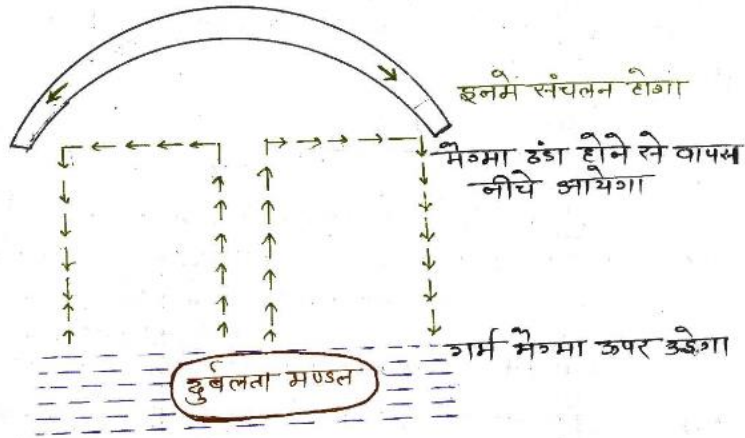 इनमें संचलन होगा
मैग्मा ठंडा होने से वापस
नीचे आयेगा
गर्म मैग्मा ऊपर उठेगा
दुर्बलता मण्डल